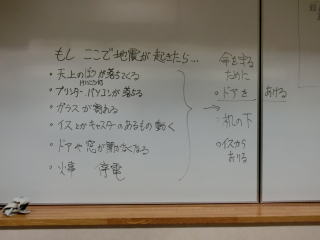 もし ここで地震が起きたら…
・天上のぼうが落ちてくる
・プリンター パソコンが落ちる
・ガラスが割れる
・イスとかキャスターのあるもの動く
・ドアや窓が動かなくなる
・火事 停電
命を守る
ために
・ドアを あける
・机の下
・イスから
おりる